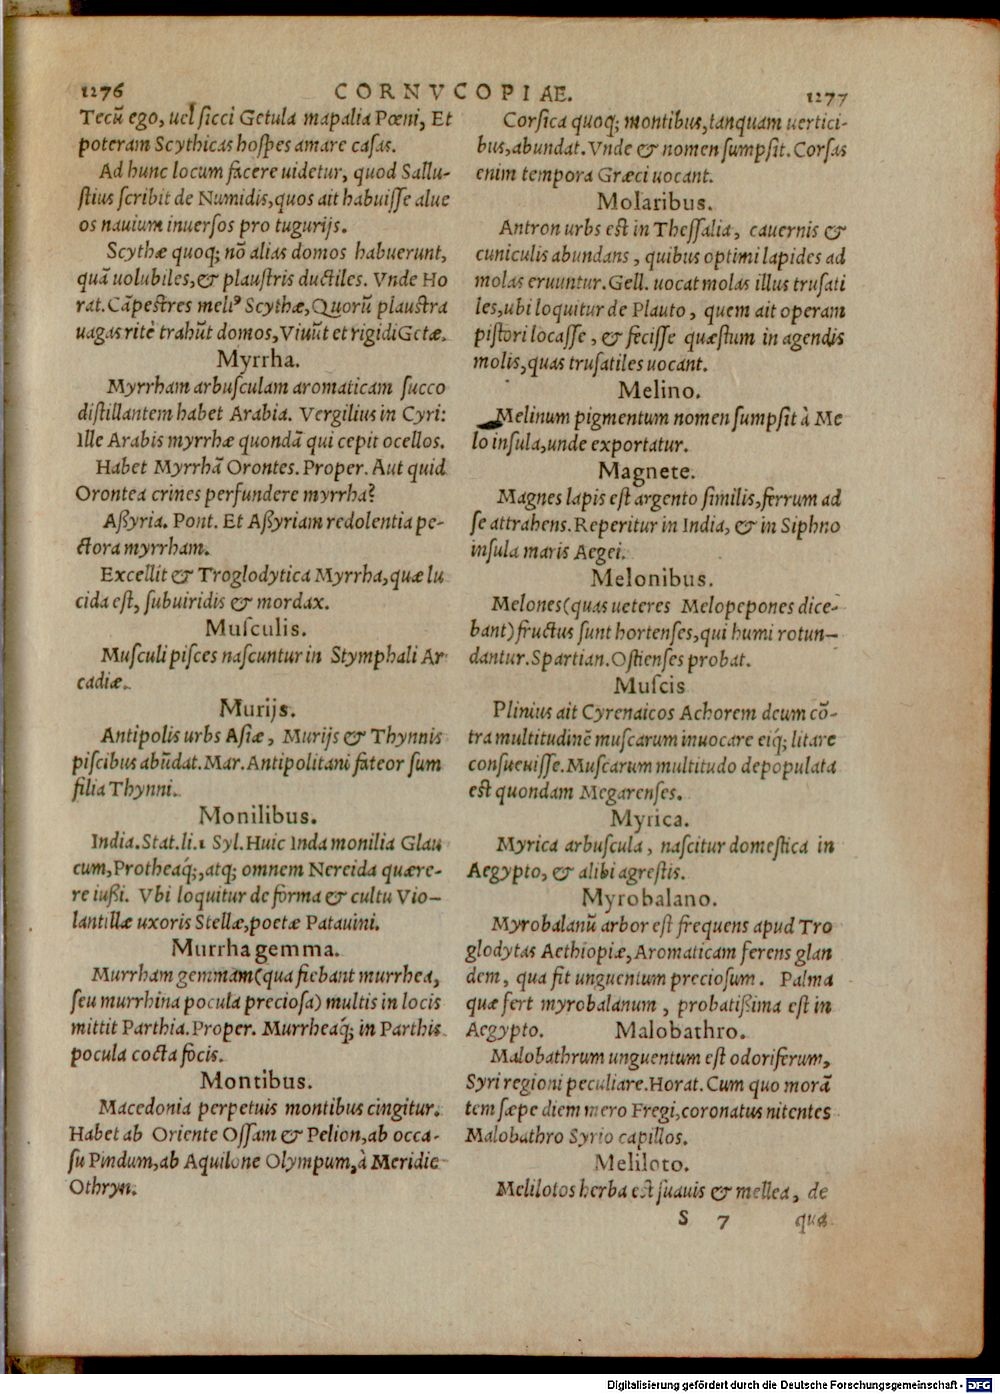 1276 CORNVCOPIAE. 1277
Tecū ego, uel ſicci Getula mapalia Pœni, Et
poteram Scythicas hoſpes amare caſas.
Ad hunc locum facere uidetur, quod Sallu-
ſtius ſcribit de Numidis, quos ait habuiſſe alue
os nauium inuerſos pro tugurijs.
Scythæ quoq; nō alias domos habuerunt,
quā uolubiles, & plauſtris ductiles. Vnde Ho
rat. Cāpeſtres meliꝰ Scythæ, Quorū plauſtra
uagas rite trahūt domos, Viuūt et rigidi Getæ.
Myrrha.
Myrrham arbuſculam aromaticam ſucco
diſtillantem habet Arabia. Vergilius in Cyri:
Ille Arabis myrrhæ quondā qui cepit ocellos.
Habet Myrrhā Orontes. Proper. Aut quid
Orontea crines perfundere myrrha?
Aßyria. Pont. Et Aßyriam redolentia pe-
ctora myrrham.
Excellit & Troglodytica Myrrha, quæ lu
cida eſt, ſubuiridis & mordax.
Muſculis.
Muſculi piſces naſcuntur in Stymphali Ar
cadiæ.
Murijs.
Antipolis urbs Aſiæ, Murijs & Thynnis
piſcibus abūdat. Mar. Antipolitani fateor ſum
filia Thynni.
Monilibus.
India. Stat. li. 1 Syl. Huic Inda monilia Glau
cum, Protheaq́;, atq; omnem Nereida quære-
re iußi. Vbi loquitur de forma & cultu Vio-
lantillæ uxoris Stellæ, poetæ Patauini.
Murrha gemma.
Murrham gemmam (qua fiebant murrhea,
ſeu murrhina pocula precioſa) multis in locis
mittit Parthia. Proper. Murrheaq́; in Parthis
pocula cocta focis.
Montibus.
Macedonia perpetuis montibus cingitur.
Habet ab Oriente Oſſam & Pelion, ab occa-
ſu Pindum, ab Aquilone Olympum, à Meridie
Othryn.
Corſica quoq; montibus, tanquam uertici-
bus, abundat. Vnde & nomen ſumpſit. Corſas
enim tempora Græci uocant.
Molaribus.
Antron urbs eſt in Theſſalia, cauernis &
cuniculis abundans, quibus optimi lapides ad
molas eruuntur. Gell. uocat molas illus truſati
les, ubi loquitur de Plauto, quem ait operam
piſtori locaſſe, & feciſſe quæſtum in agendis
molis, quas truſatiles uocant.
Melino.
Melinum pigmentum nomen ſumpſit à Me
lo inſula, unde exportatur.
Magnete.
Magnes lapis eſt argento ſimilis, ferrum ad
ſe attrahens. Reperitur in India, & in Siphno
inſula maris Aegei.
Melonibus.
Melones (quas ueteres Melopepones dice-
bant) fructus ſunt hortenſes, qui humi rotun-
dantur. Spartian. Oſtienſes probat.
Muſcis
Plinius ait Cyrenaicos Achorem deum cō-
tra multitudinē muſcarum inuocare eiq́; litare
conſueuiſſe. Muſcarum multitudo depopulata
eſt quondam Megarenſes.
Myrica.
Myrica arbuſcula, naſcitur domeſtica in
Aegypto, & alibi agreſtis.
Myrobalano.
Myrobalanū arbor eſt frequens apud Tro
glodytas Aethiopiæ, Aromaticam ferens glan
dem, qua fit unguentum precioſum. Palma
quæ fert myrobalanum, probatißima eſt in
Aegypto. Malobathro.
Malobathrum unguentum eſt odoriferum,
Syri regioni peculiare. Horat. Cum quo morā
tem ſæpe diem mero Fregi, coronatus nitentes
Malobathro Syrio capillos.
Meliloto.
Melilotos herba eſt ſuauis & mellea, de
S 7 qua
Digitalisierung gefördert durch die Deutsche Forschungsgemeinschaft - DFG